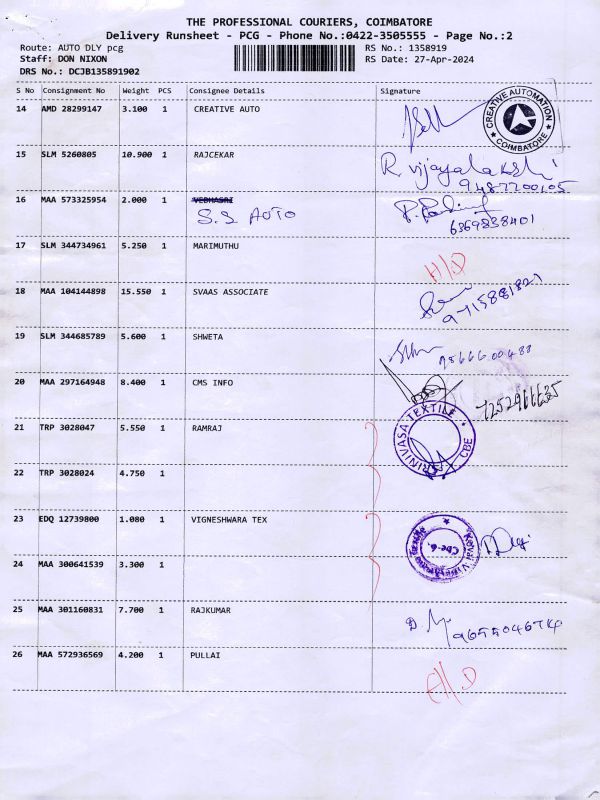 THE PROFESSIONAL COURIERS, COIMBATORE
Delivery Runsheet - PCG - Phone No.:0422-3505555 - Page No.:2
Route: AUTO DLY pcg RS No.: 1358919
Staff: DON NIXON RS Date: 27-Apr-2024
DRS No.: DCJB135891902
S No Consignment No Weight PCS Consignee Details Signature
14 AMD 28299147 3.100 1 CREATIVE AUTO
CREATIVE AUTOMATION COIMBATORE
15 SLM 5260805 10.900 1 RAJCEKAR R. Vijayalakshi
9487700105
16 MAA 573325954 2.000 1 VEDHASRI
S.S AUTO 6369838401
17 SLM 344734961 5.250 1 MARIMUTHU
18 MAA 104144898 15.550 1 SVAAS ASSOCIATE
9715881827
19 SLM 344685789 5.600 1 SHWETA
20 MAA 297164948 8.400 1 CMS INFO
21 TRP 3028047 5.550 1 RAMRAJ
SRINIVASA TEXTILE CBE
22 TRP 3028024 4.750 1
23 EDQ 12739800 1.080 1 VIGNESHWARA TEX
Cbe-6.
24 MAA 300641539 3.300 1
25 MAA 301160831 7.700 1 RAJKUMAR
26 MAA 572936569 4.200 1 PULLAI